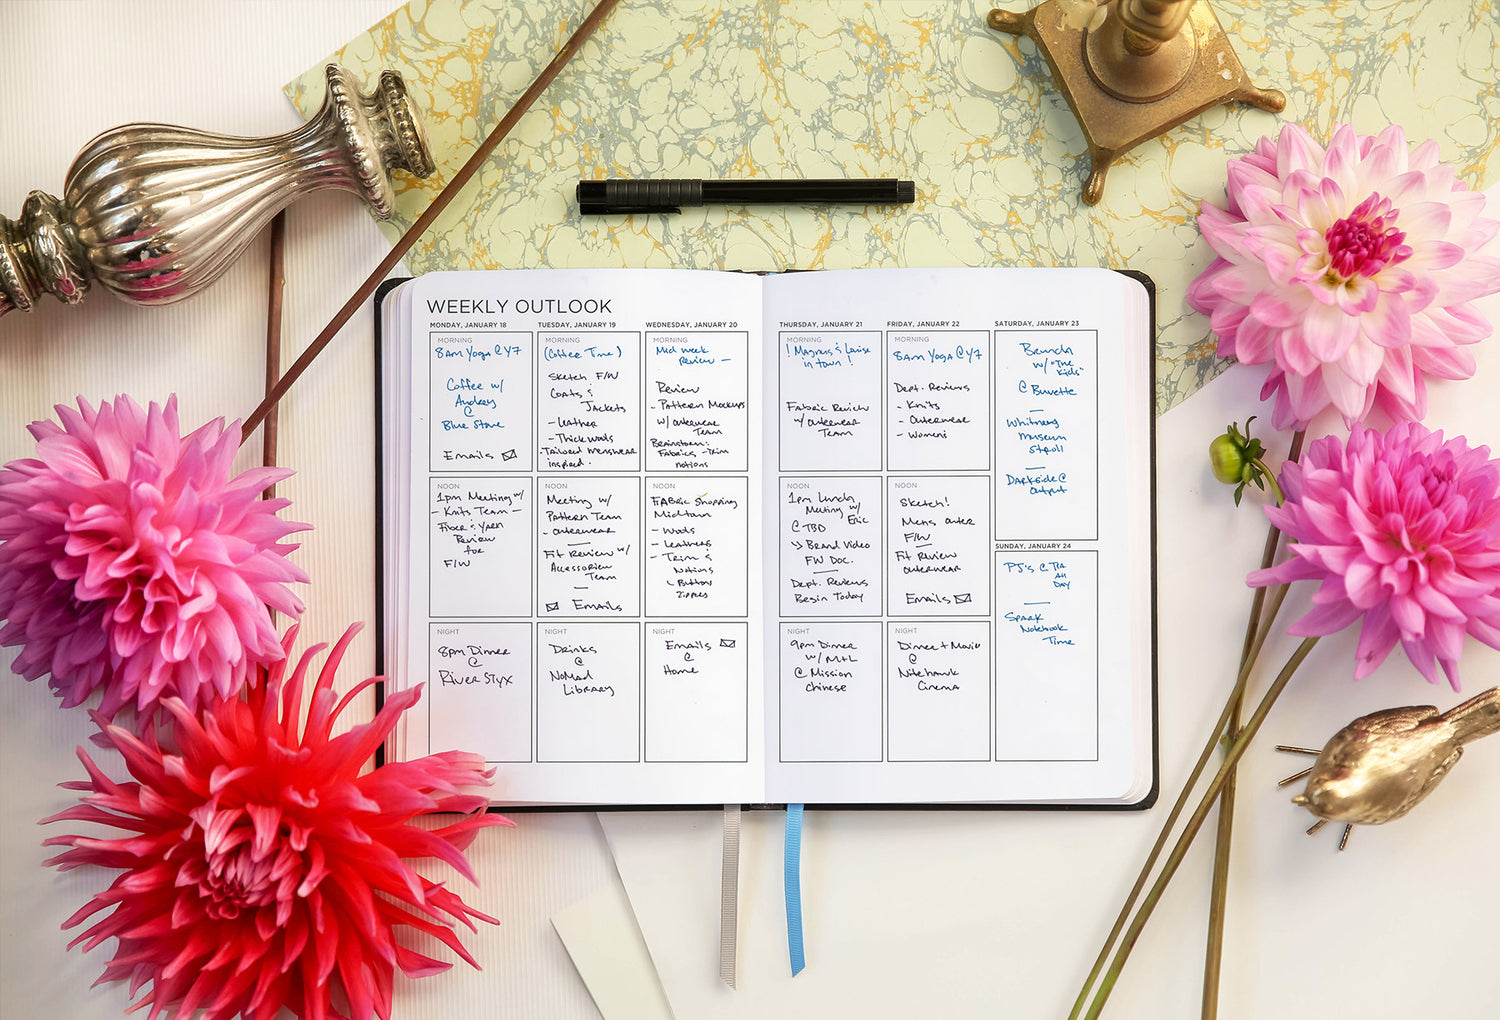 WEEKLY OUTLOOK
MONDAY, JANUARY 18
MORNING
8am Yoga @ Y7
Coffee w/
Audrey
@
Blue Stone
Emails
NOON
1pm Meeting w/
- Knits Team -
Fiber & Yarn
Review
for
F/W
NIGHT
8pm Dinner
@
River Styx
TUESDAY, JANUARY 19
MORNING
(Coffee Time)
Sketch F/W
Coats &
Jackets
- Leather
- Thick wools
- Tailored menswear
inspired.
NOON
Meeting w/
Pattern Team
- outerwear
Fit Review w/
Accessories
Team
Emails
NIGHT
Drinks
@
NoMad
Library
WEDNESDAY, JANUARY 20
MORNING
Mid week
Review -
Review
- Pattern Mockups
w/ outerwear
Team
Brainstorm:
Fabrics - Trim
notions
NOON
Fabric Shopping
Midtown
- Wools
- Leathers
- Trim &
Notions
Buttons
Zippers
NIGHT
Emails
@
Home
THURSDAY, JANUARY 21
MORNING
! Magnus & Louise
in town!
Fabric Review
w/ outerwear
Team
NOON
1pm Lunch
Meeting w/
Eric
@ TBD
Brand Video
FW Doc.
Dept. Reviews
Begin Today
NIGHT
9pm Dinner
w/ M+L
@ Mission
Chinese
FRIDAY, JANUARY 22
MORNING
8am Yoga @ Y7
Dept. Reviews
- Knits
- Outerwear
- Womens
NOON
Sketch!
Mens outer
F/W
Fit Review
outerwear
Emails
NIGHT
Dinner + Movie
@
Nitehawk
Cinema
SATURDAY, JANUARY 23
Brunch
w/ "The
Kids"
@ Buvette
Whitney
Museum
Stroll
Darkside @
Output
SUNDAY, JANUARY 24
PJ's @
All
Day
Spark
Notebook
Time